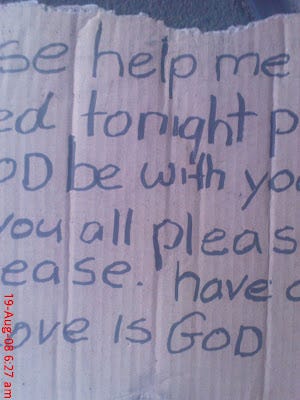 se help me
ed tonight p
OD be with yo
you all pleas
ease. have a
ove is GOD
19-Aug-08 6:27 am